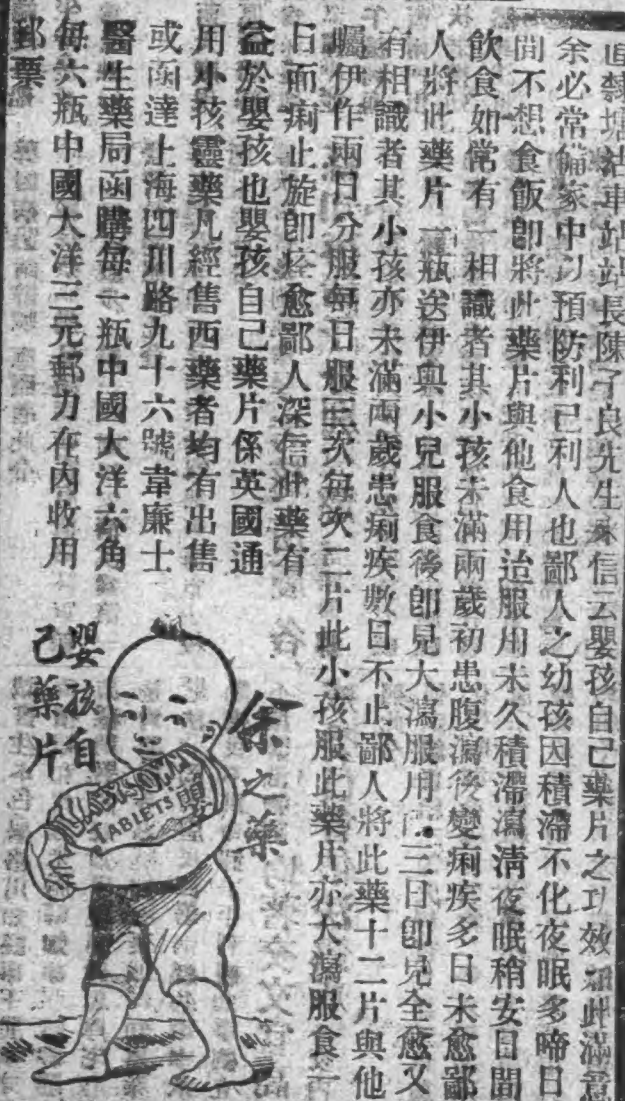 直隸塘沽車站站長陳子良先生來信云嬰孩自己藥片之功效如此滿意
余必常備家中以預防利己利人也鄙人之幼孩因積滯不化夜眠多啼日
間不想食飯卽將此藥片與他食用治服用未久積滯瀉淸夜眠稍安日間
飲食如常有一相識者其小孩未滿兩歲初患腹瀉後變痢疾多日未愈鄙
人將此藥片一瓶送伊與小兒服食後卽見大瀉服用二三日卽見全愈又
有相識者其小孩亦未滿兩歲患痢疾數日不止鄙人將此藥十二片與他
囑伊作兩日分服每日服三次每次二片此小孩服此藥片亦大瀉服食一
日而痢止旋卽痊愈鄙人深信此藥有
益於嬰孩也嬰孩自己藥片係英國通
用小孩靈藥凡經售西藥者均有出售
或函達上海四川路九十六號韋廉士
醫生藥局函購每一瓶中國大洋六角
每六瓶中國大洋三元郵力在內收用
郵票
余之藥
嬰孩自
己藥片
BABY'S OWN
TABLETS